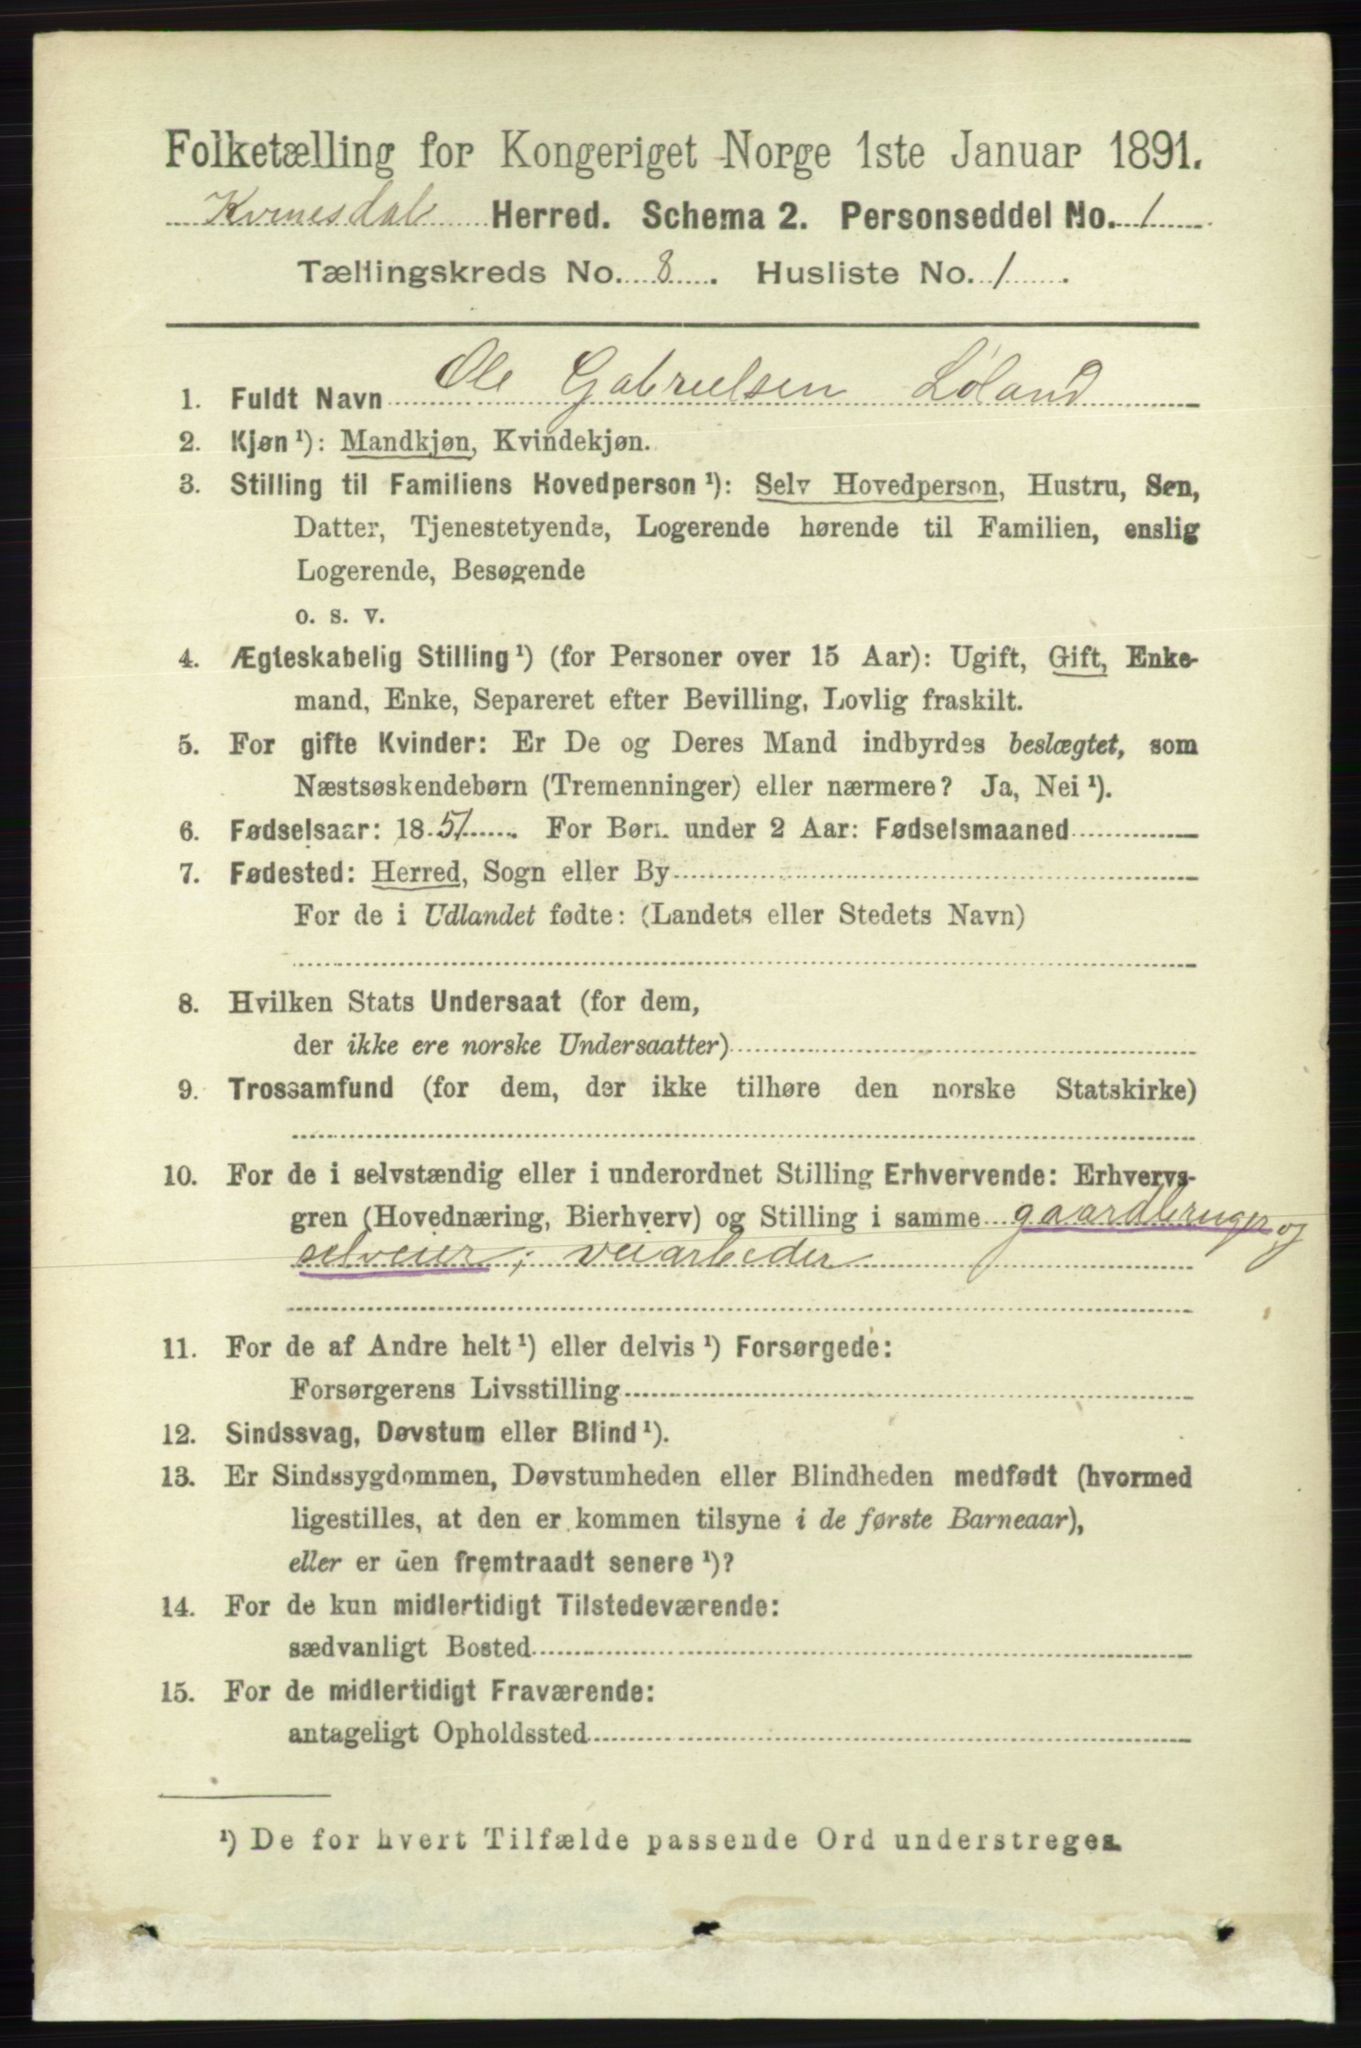 Folketælling for Kongeriget Norge 1ste Januar 1891.
Kvinesdal Herred. Schema 2. Personseddel No. 1
Tællingskreds No. 8. Husliste No. 1.
1. Fuldt Navn Ole Gabrielsen Løland
2. Kjøn ¹): Mandkjøn, Kvindekjøn.
3. Stilling til Familiens Hovedperson ¹): Selv Hovedperson, Hustru, Søn,
Datter, Tjenestetyende, Logerende hørende til Familien, enslig
Logerende, Besøgende
o. s. v.
4. Ægteskabelig Stilling ¹) (for Personer over 15 Aar): Ugift, Gift, Enke-
mand, Enke, Separeret efter Bevilling, Lovlig fraskilt.
5. For gifte Kvinder: Er De og Deres Mand indbyrdes beslægtet, som
Næstsøskendebørn (Tremenninger) eller nærmere? Ja, Nei ¹).
6. Fødselsaar: 1851. For Børn under 2 Aar: Fødselsmaaned
7. Fødested: Herred, Sogn eller By
For de i Udlandet fødte: (Landets eller Stedets Navn)
8. Hvilken Stats Undersaat (for dem,
der ikke ere norske Undersaatter)
9. Trossamfund (for dem, der ikke tilhøre den norske Statskirke)
10. For de i selvstændig eller i underordnet Stilling Erhvervende: Erhvervs-
gren (Hovednæring, Bierhverv) og Stilling i samme gaardbruger og
selveier; veiarbeder
11. For de af Andre helt ¹) eller delvis ¹) Forsørgede:
Forsørgerens Livsstilling
12. Sindssvag, Døvstum eller Blind ¹).
13. Er Sindssygdommen, Døvstumheden eller Blindheden medfødt (hvormed
ligestilles, at den er kommen tilsyne i de første Barneaar),
eller er den fremtraadt senere ¹)?
14. For de kun midlertidigt Tilstedeværende:
sædvanligt Bosted
15. For de midlertidigt Fraværende:
antageligt Opholdssted
¹) De for hvert Tilfælde passende Ord understreges.